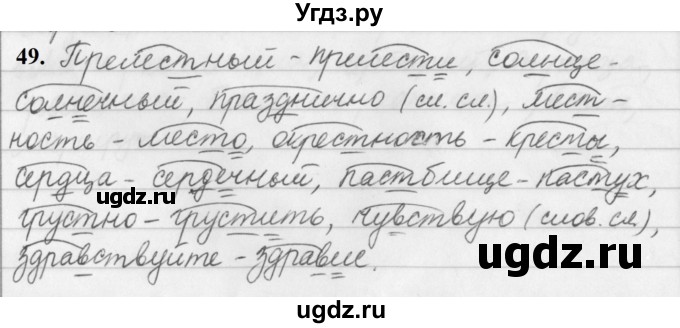 Угдз.ру
49. Прелестный - прелести, солнце -
солнечный, празднично (сл. сл.), мест -
ность - место, окрестность - кресты,
сердца - сердечный, пастбище - пастух,
грустно - грустить, чувствую (слов. сл.),
здравствуйте - здравие.
gdz.ru
ugdz.ru
ugdz.ru
gdz.ru
ugdz.ru
ugdz.ru